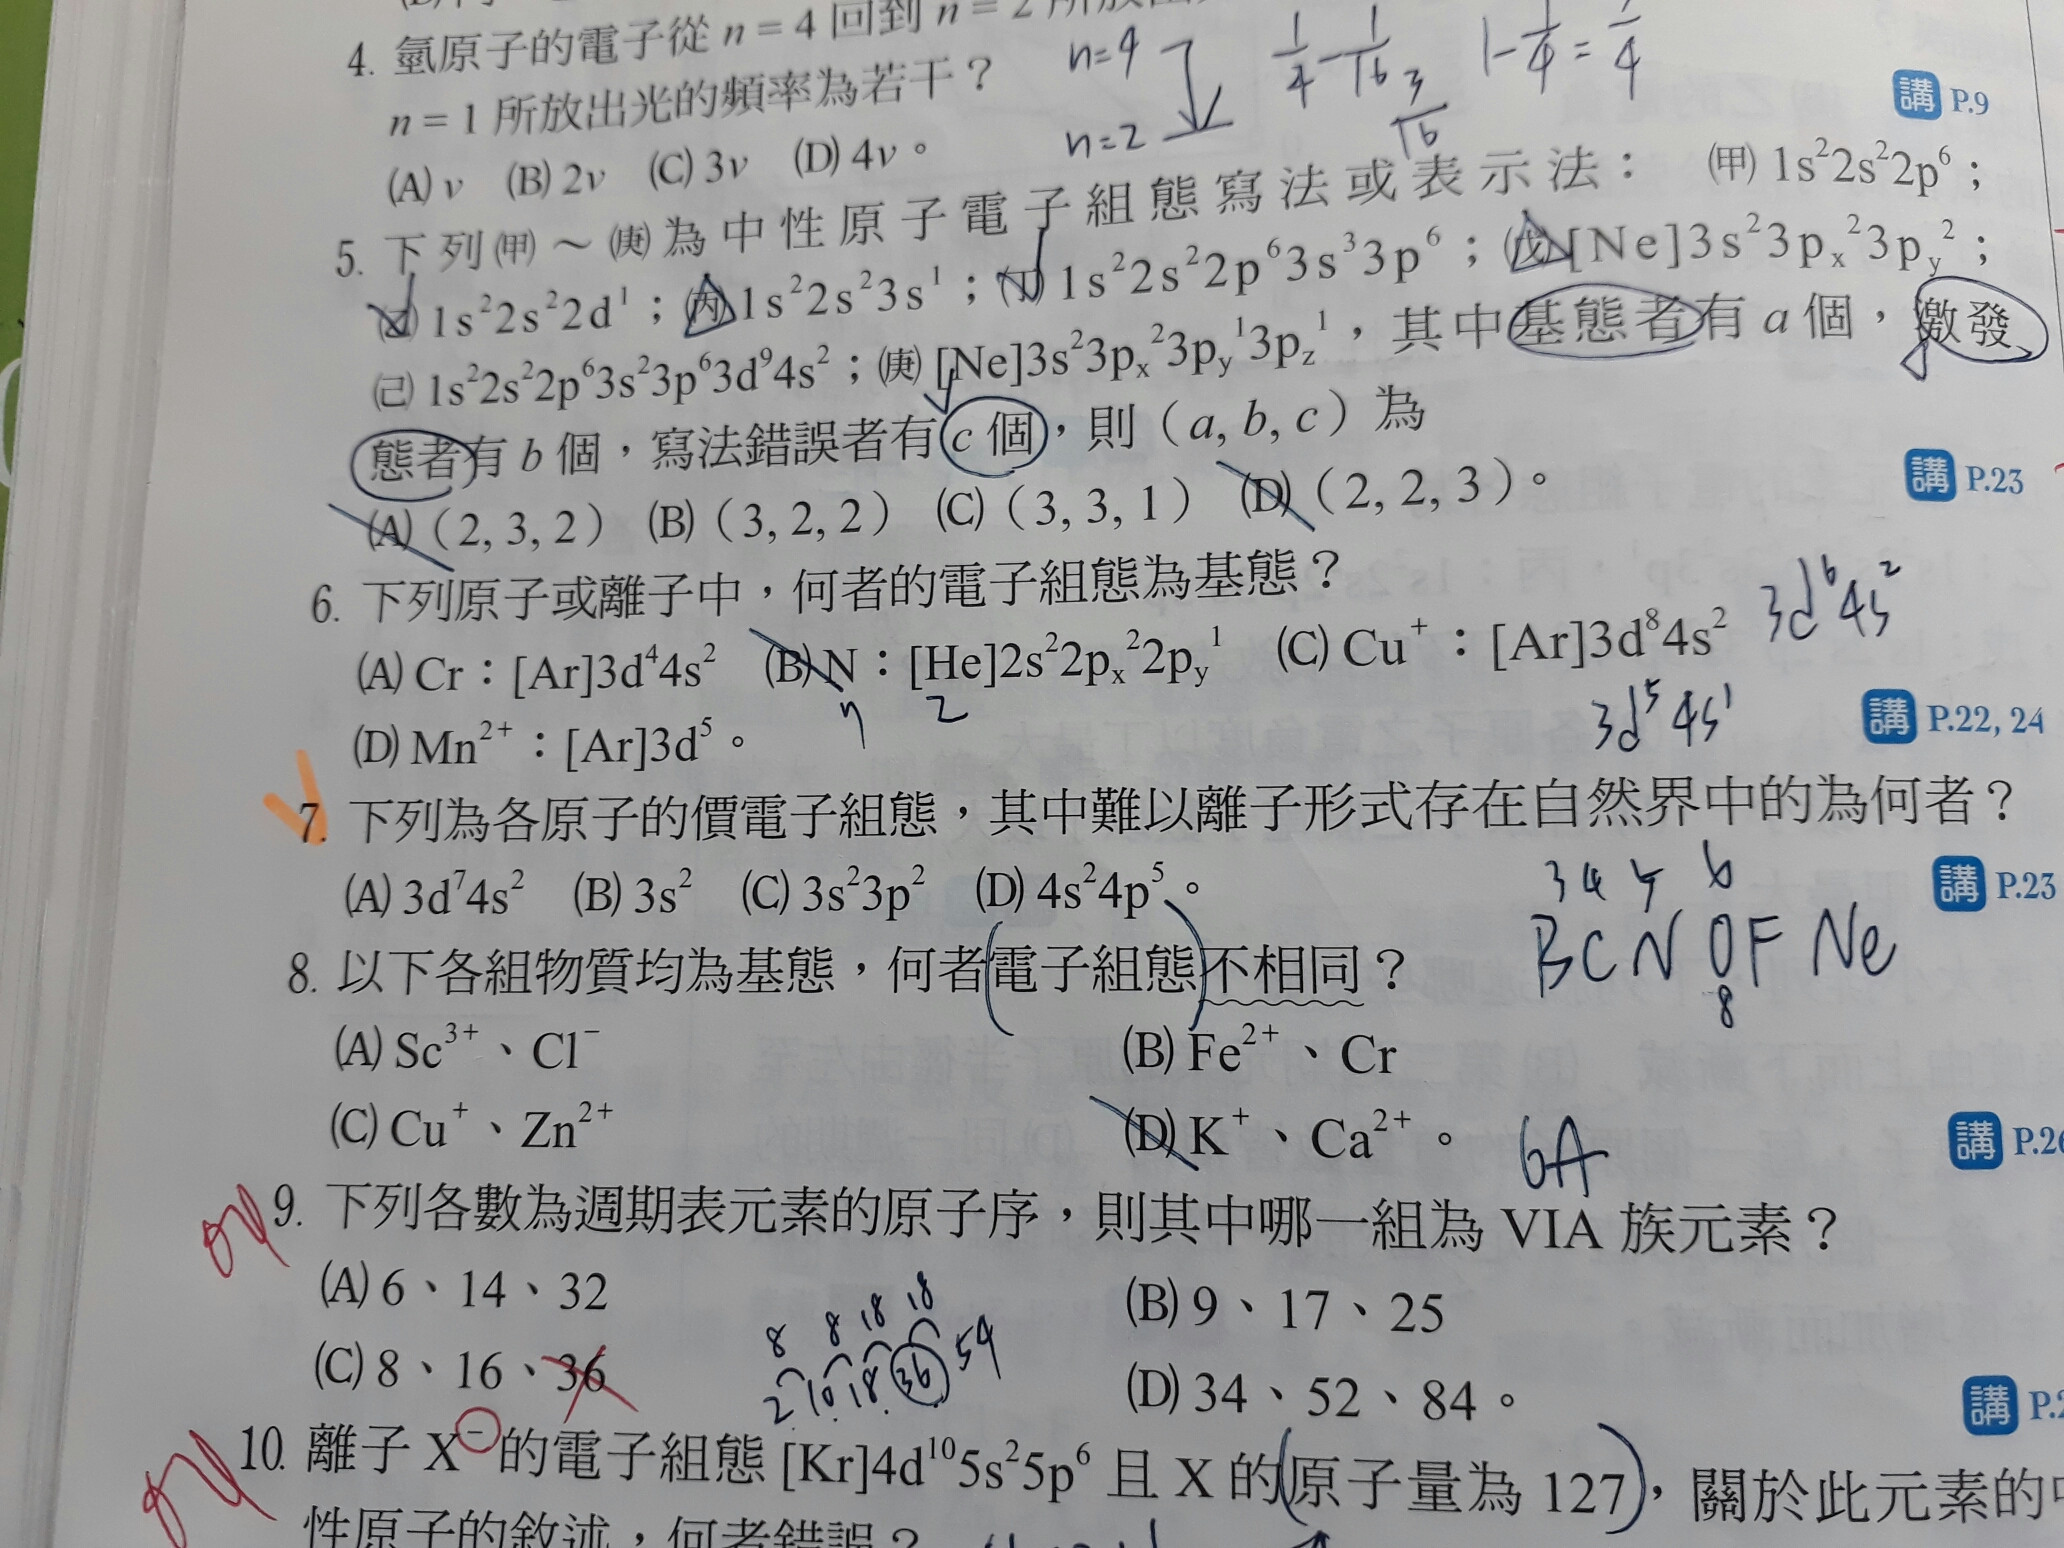 4. 氫原子的電子從 n = 4 回到 n = 2 所放出
n=4
1/4 - 1/16
3/16
n=2
n = 1 所放出光的頻率為若干？
講 P.9
(A) ν (B) 2ν (C) 3ν (D) 4ν。
5. 下列㈙～㈚為中性原子電子組態寫法或表示法：(甲) 1s²2s²2p⁶；
(乙) 1s²2s²2d¹；(丙) 1s²2s²3s¹；(丁) 1s²2s²2p⁶3s³3p⁶；(戊) [Ne]3s²3pₓ²3p_y²；
(己) 1s²2s²2p⁶3s²3p⁶3d⁹4s²；(庚) [Ne]3s²3pₓ²3p_y¹3p_z¹，其中基態者有 a 個，激發
態者有 b 個，寫法錯誤者有 c 個，則（a, b, c）為
講 P.23
(A)（2, 3, 2） (B)（3, 2, 2） (C)（3, 3, 1） (D)（2, 2, 3）。
6. 下列原子或離子中，何者的電子組態為基態？
3d⁶4s²
(A) Cr：[Ar]3d⁴4s² (B) N：[He]2s²2pₓ²2p_y¹ (C) Cu⁺：[Ar]3d⁸4s²
2
3d⁵4s¹
講 P.22, 24
(D) Mn²⁺：[Ar]3d⁵。
7. 下列為各原子的價電子組態，其中難以離子形式存在自然界中的為何者？
講 P.23
(A) 3d⁷4s² (B) 3s² (C) 3s²3p² (D) 4s²4p⁵。
3 4 5 6
B C N O F Ne
8
8. 以下各組物質均為基態，何者電子組態不相同？
(A) Sc³⁺、Cl⁻ (B) Fe²⁺、Cr
(C) Cu⁺、Zn²⁺ (D) K⁺、Ca²⁺。
6A
講
9. 下列各數為週期表元素的原子序，則其中哪一組為 VIA 族元素？
(A) 6、14、32 (B) 9、17、25
(C) 8、16、36 (D) 34、52、84。
8 8 18 18
2 10 18 36 54
講
10. 離子 X⁻ 的電子組態 [Kr]4d¹⁰5s²5p⁶ 且 X 的原子量為 127，關於此元素的中
性原子的敘述，何者錯誤？